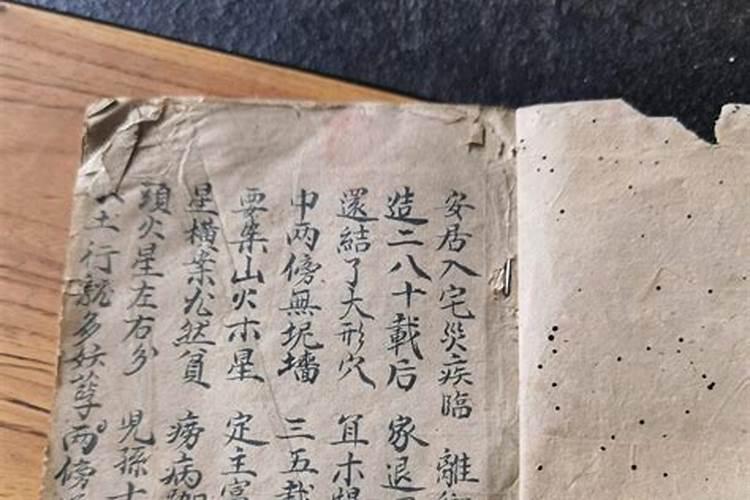 安居入宅災疾臨 離
造二八十載后 家退
還結了大形穴 宜木
中兩傍無坭墻 三五載
要案山火木星 定主富
星橫案尤然貧 痨病
頭火星左右分 兒孫
土行龍多妖孽 兩傍